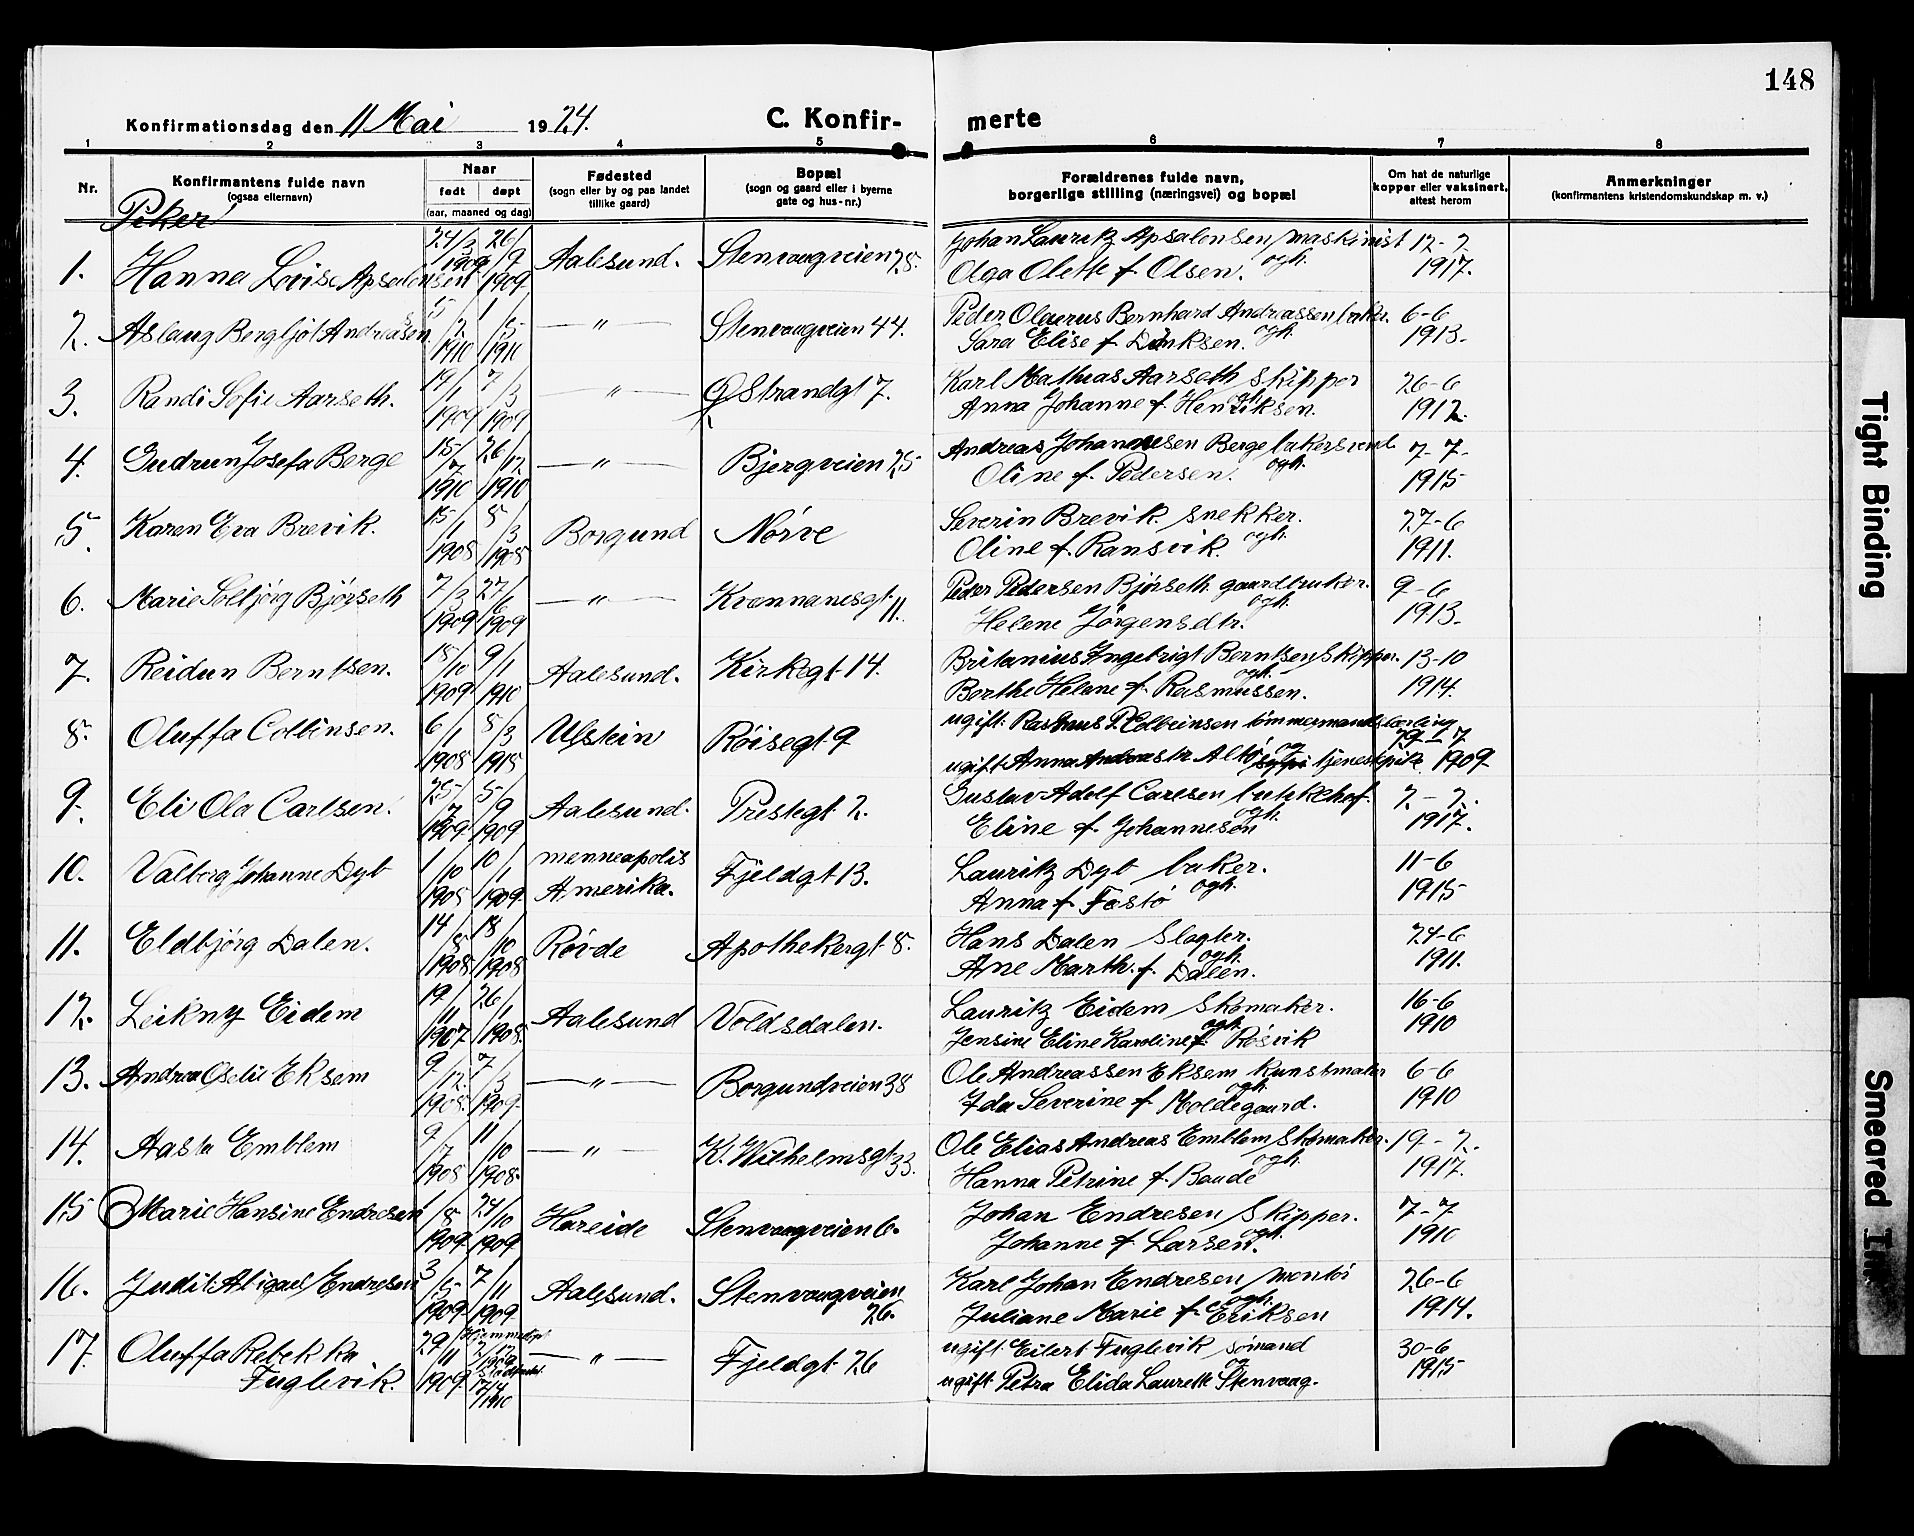 148
Konfirmationsdag den 11 Mai 1924. C. Konfir- merte
1 2 3 4 5 6 7 8
Nr. Konfirmantens fulde navn (ogsaa ellernavn) Naar født døpt (aar, maaned og dag) Fødested (sogn eller by og paa landet tillike gaard) Bopæl (sogn og gaard eller i byerne gate og hus-nr.) Forældrenes fulde navn, borgerlige stilling (næringsvei) og bopæl Om hat de naturlige kopper eller vaksinert, attest herom Anmerkninger (konfirmantens kristendomskundskap m. v.)
Piker
1. Hanna Lovise Apsalonsen 24/3 1909 26/9 1909 Aalesund. Stenvaagveien 28. Johan Lauritz Apsalonsen, maskinist ogh. 12-2 1917.
Olga Olette f. Olsen.
2. Aslaug Bergljot Andreassen 5/2 1910 1/5 1910 —"— Stenvaagveien 44. Peder Olaerus Bernhard Andreassen baker. ogh. 6-6 1913.
Sara Elise f. Dinksen.
3. Randi Sofie Aarseth. 19/1 1909 7/3 1909 —"— Ø Strandgt 7. Karl Mathias Aarseth skipper ogh. 26-6 1912.
Anna Johanne f. Henriksen.
4. Gudrun Josefa Berge 15/7 1910 26/12 1910 —"— Bjergveien 25 Andreas Johannesen Berge bakersvend ogh. 7-7- 1915
Oline f. Pedersen.
5. Karen Eva Brevik. 15/1 1908 8/3 1908 Borgund Nørve Severin Brevik. snekker. ogh. 27-6 1911.
Oline f. Ransvik.
6. Marie Solbjørg Bjørseth 7/3 1909 27/6 1909 —"— Kvennanesgt. 11. Peder Pedersen Bjørseth. gaardbruker. ogh. 9-6 1913.
Helene Jørgensdtr.
7. Reidun Berntsen. 18/10 1909 9/1 1910 Aalesund. Kirkegt. 14. Britanius Ingebrigt Berntsen, skipper. ogh. 13-10 1914.
Berthe Helene f. Rasmussen.
8. Oluffa Colbinsen. 6/1 1908 8/3 1918 Ulstein Røisegt. 9 ugift: Rasmus P. Colbeinsen tømmermandslærling og 19-7 1909
ugift Anna tjenestpike.
9. Eli Ola Carlsen. 25/7 1909 5/9 1909 Aalesund. Prestegt. 2. Gustav Adolf Carlsen ogh. 2-2. 1917.
Eline f. Johannesen
10. Valborg Johanne Dyb 1/10 1908 10/1 1909 menneapolis Amerika. Fjeldgt 13. Lauritz Dyb baker. ogh. 11-6 1915
Anna f. Fostø
11. Eldbjørg Dalen. 14/8 1908 18/10 1908 Røvde Apothekergt. 8. Hans Dalen Slagter. ogh. 24-6 1911.
Ane Marth. f. Dalen.
12. Leikny Eidem 19/11 1907 26/1 1908 Aalesund Voldsdalen. Lauritz Eidem Skomaker. ogh 16-6 1910
Jensine Eline Karoline f. Røsvik
13. Andrea Oselie Eksem 9/12 1908 7/3 1909 —"— Borgundveien 38 Ole Andreassen Eksem kunstmaler ogh. 6-6 1910
Ida Severine f. Moldegaard.
14. Aasta Emblem 9/7 1908 11/10 1908. —"— K. Wilhelmsgt 33. Ole Elias Andreas Emblem, skomaker. ogh. 19-2. 1917.
Hanna Petrine f. Baude
15 Marie Hansine Endresen 1/8 1909 24/10 1909 Hareide Stenvaagveien 6. Johan Endresen skipper. ogh. 7-7 1910
Johanne f. Larsen.
16. Judit Abigael Endresen 3/5 1909 7/11 1909 Aalesund. Stenvaagveien 26. Karl Johan Endresen, montør ogh. 26-6 1914.
Juliane Marie f. Eriksen
17. Oluffa Rebekka Fuglevik. 29/11 1909 hjemmedøpt 2/12 1909 stadfestet 17/4 1910 —"— Fjeldgt. 26 ugift Eilert Fuglevik sømand og 30-6 1915
ugift Petra Elida Laurette Stenvaag.
Tight Binding
Smeared Ink